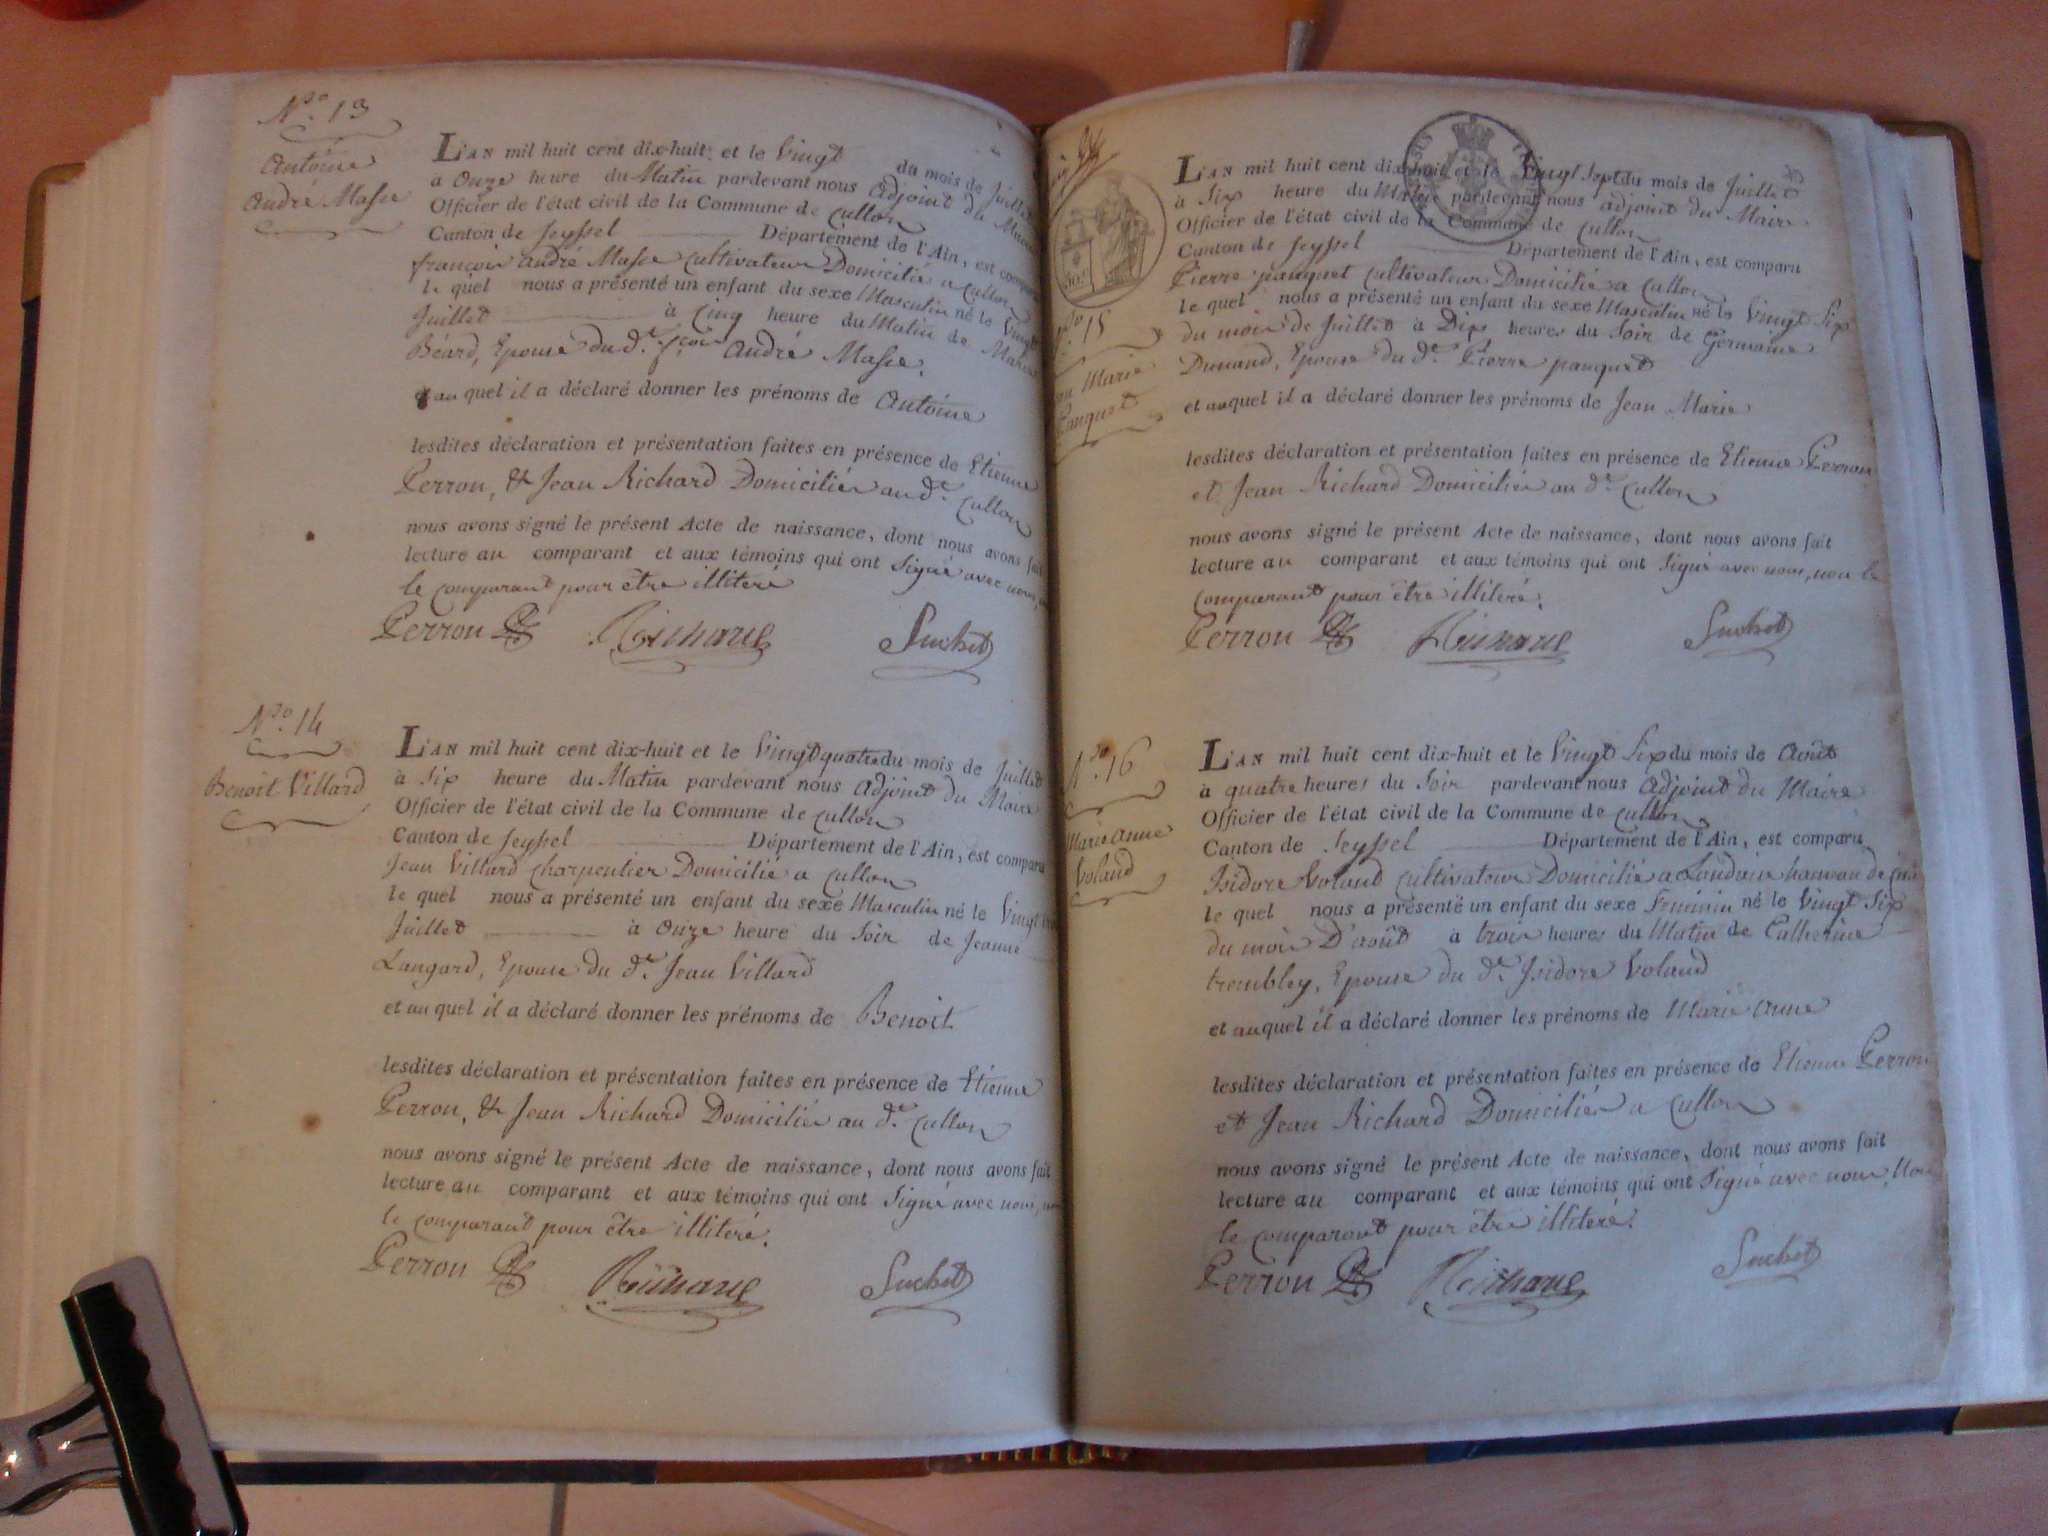 N.ro 13
Antoine
André Masse
L'AN mil huit cent dix-huit et le Vingt du mois de Juillet
à Onze heure du Matin pardevant nous adjoint du Maire
Officier de l'état civil de la Commune de Cullon
Canton de Seyssel Département de l'Ain, est comparu
françois andré Masse Cultivateur Domicilié a Cullon
le quel nous a présenté un enfant du sexe Masculin né le Vingt
Juillet à Cinq heure du Matin de Marie
Béard, Epouse du d.t fçois André Masse.
et au quel il a déclaré donner les prénoms de Antoine
lesdites déclaration et présentation faites en présence de Etienne
Perron, & Jean Richard Domiciliés au d.t Cullon
nous avons signé le présent Acte de naissance, dont nous avons fait
lecture au comparant et aux témoins qui ont Signé avec nous,
le comparant pour être illiteré
Perron Richard Suchet
N.ro 14
Benoit Villard
L'AN mil huit cent dix-huit et le Vingt quatre du mois de Juillet
à Six heure du Matin pardevant nous Adjoint du Maire
Officier de l'état civil de la Commune de Cullon
Canton de Seyssel Département de l'Ain, est comparu
Jean Villard Charpentier Domicilié a Cullon
le quel nous a présenté un enfant du sexe Masculin né le Vingt
Juillet à Onze heure du Soir de Jeanne
Langard, Epouse du d.t Jean Villard
et au quel il a déclaré donner les prénoms de Benoit
lesdites déclaration et présentation faites en présence de Etienne
Perron, & Jean Richard Domiciliés au d.t Cullon
nous avons signé le présent Acte de naissance, dont nous avons fait
lecture au comparant et aux témoins qui ont Signé avec nous, non
le comparant pour être illiteré.
Perron Richard Suchet
N.ro 15
Jean Marie
Panquet
L'AN mil huit cent dix-huit et le Vingt Sept du mois de Juillet
à Six heure du Matin pardevant nous adjoint du Maire
Officier de l'état civil de la Commune de Cullon
Canton de Seyssel Département de l'Ain, est comparu
Pierre panquet Cultivateur Domicilié a Cullon
le quel nous a présenté un enfant du sexe Masculin né le Vingt Six
du mois de Juillet à Dix heures du Soir de Germaine
Dunand, Epouse du d.t Pierre panquet
et auquel il a déclaré donner les prénoms de Jean Marie
lesdites déclaration et présentation faites en présence de Etienne Perron
et Jean Richard Domiciliés au d.t Cullon
nous avons signé le présent Acte de naissance, dont nous avons fait
lecture au comparant et aux témoins qui ont Signé avec nous, non le
Comparant pour être illiteré.
Perron Richard Suchet
N.ro 16
Marie anne
Voland
L'AN mil huit cent dix-huit et le Vingt Six du mois de Août
à quatre heures du Soir pardevant nous Adjoint du Maire
Officier de l'état civil de la Commune de Cullon
Canton de Seyssel Département de l'Ain, est comparu
Isidore Voland Cultivateur Domicilié a hamau de
le quel nous a présenté un enfant du sexe Feminin né le Vingt Six
du mois D'août à trois heures du Matin de Catherine
trembley, Epouse du d.t Isidore Voland
et auquel il a déclaré donner les prénoms de Marie Anne
lesdites déclaration et présentation faites en présence de Etienne Perron
et Jean Richard Domiciliés a Cullon
nous avons signé le présent Acte de naissance, dont nous avons fait
lecture au comparant et aux témoins qui ont Signé avec nous, Non
le comparant pour être illiteré.
Perron Richard Suchet